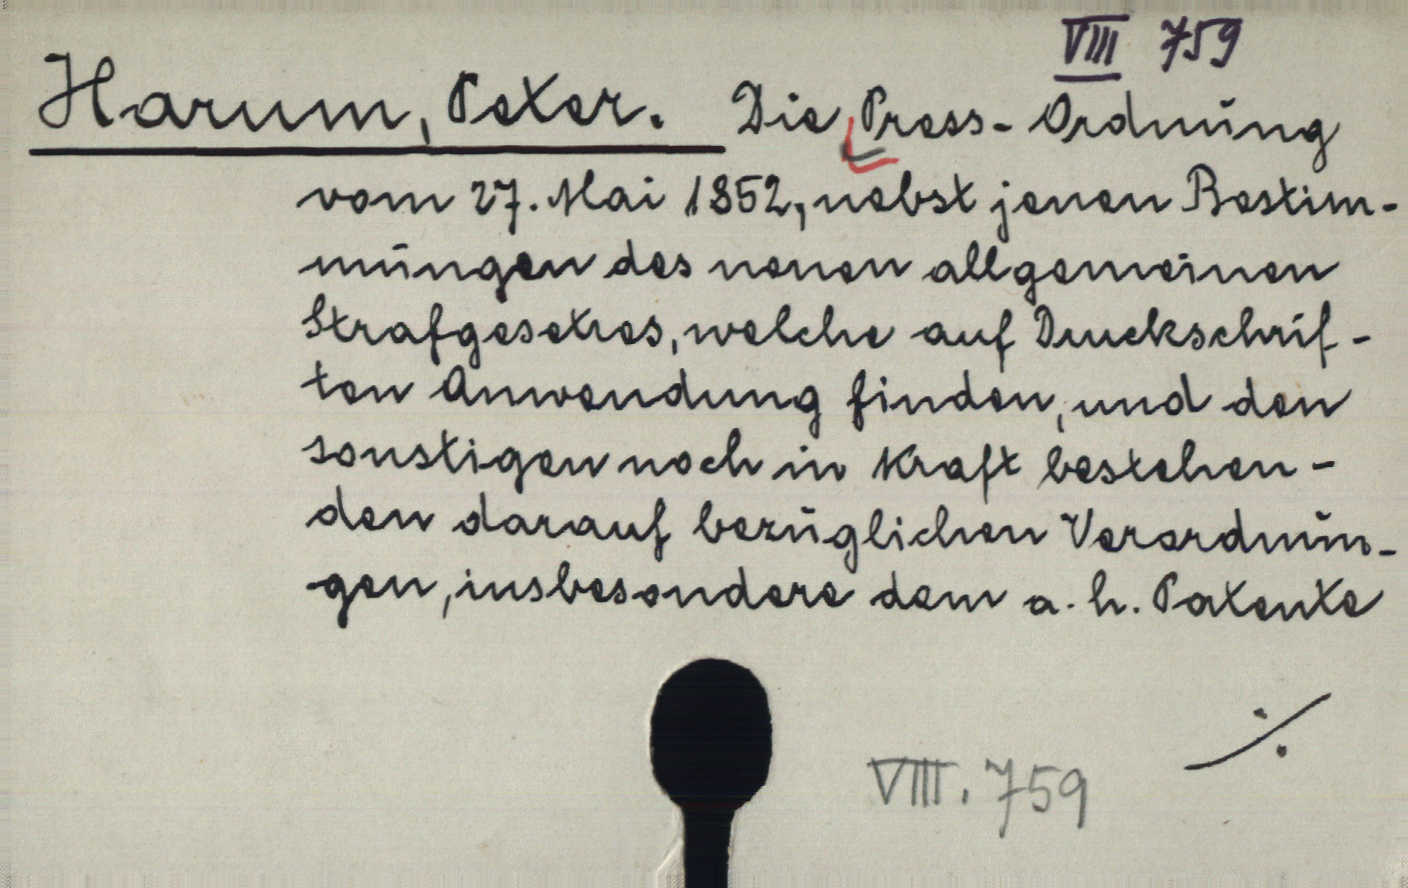 VIII 759
Harum, Peter. Die Press-Ordnung
vom 27. Mai 1852, nebst jenen Bestim-
mungen des neuen allgemeinen
Strafgesetzes, welche auf Druckschrif-
ten Anwendung finden, und den
sonstigen noch in Kraft bestehen-
den darauf bezüglichen Verordnun-
gen, insbesondere dem a. h. Patente
VIII. 759
./.